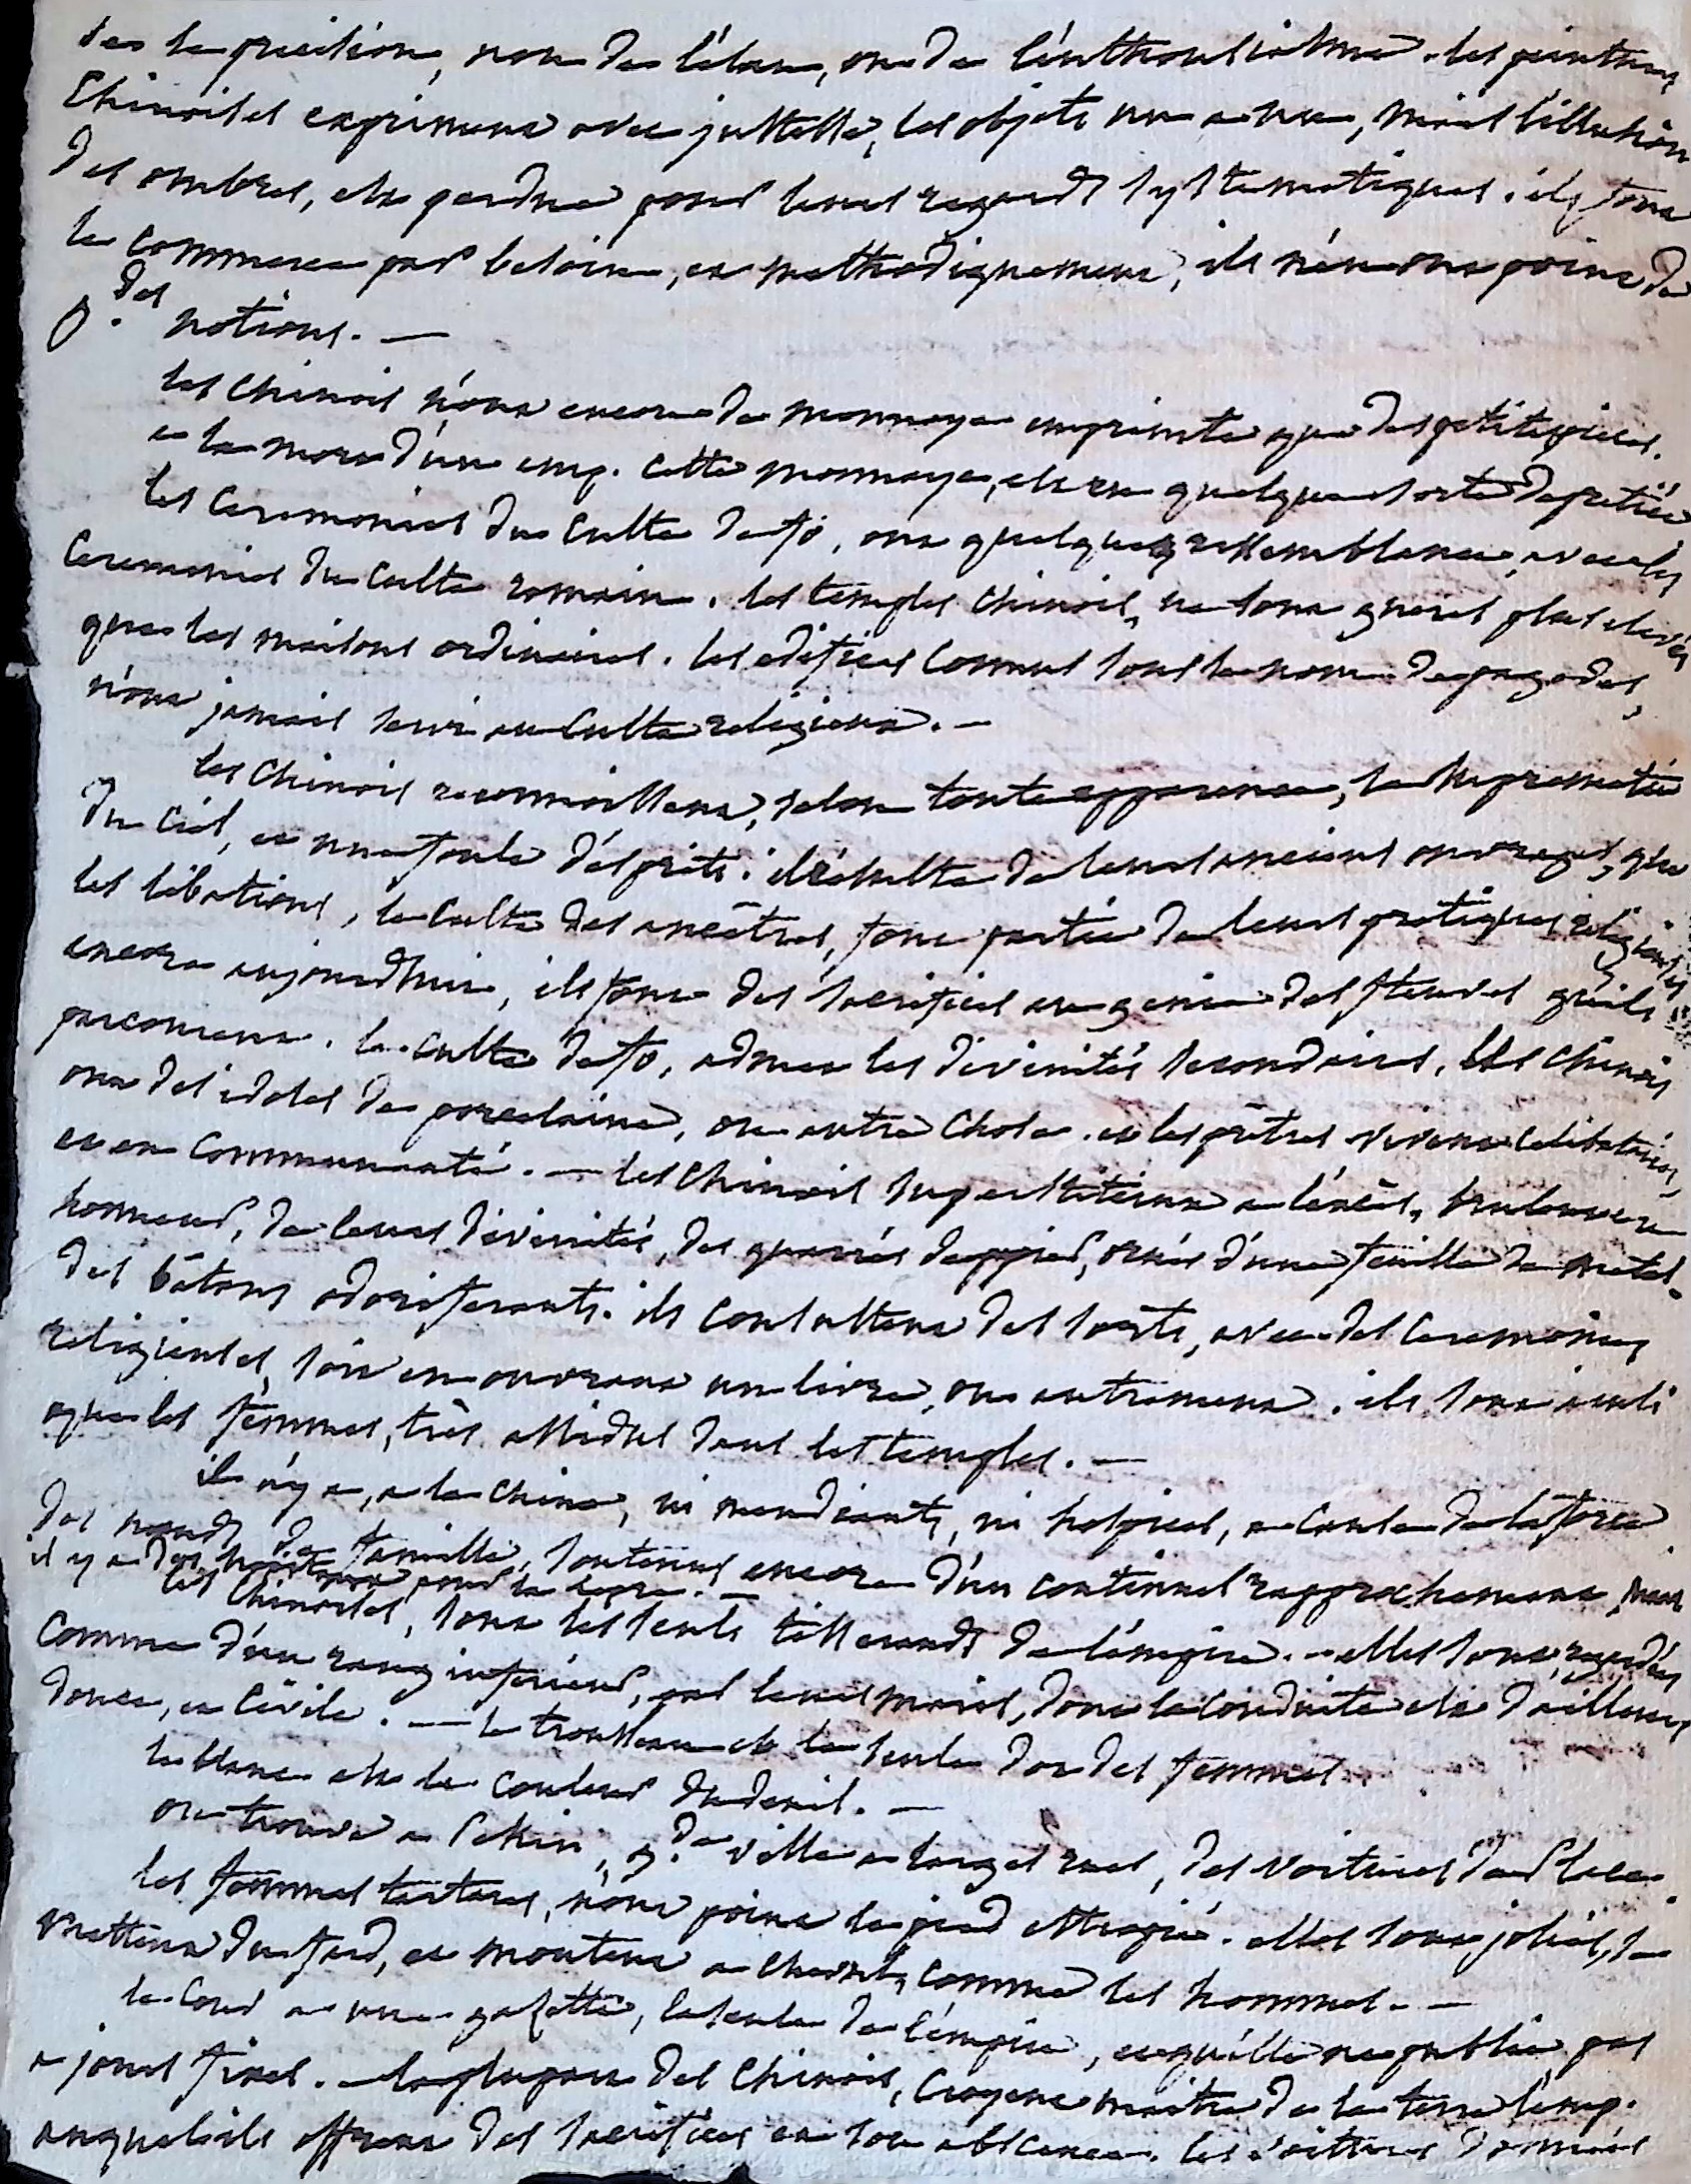 de la precision, non de l'élan, ou de l'enthousiasme. les peintures
Chinoises expriment avec justesse, les objets un a un, mais l'illusion
des ombres, est perdue pour leurs regards systematiques. ils font
le commerce par besoin, et methodiquement, ils n'en ont point de
g.des notions. —
les Chinois n'ont encore de monnoye empreinte que des petites pieces.
a la mort d'un emp. cette monnoye, est en quelque sorte
les Ceremonies du Culte de fó, ont quelques ressemblance, avec les
Ceremonies du Culte romain. les temples Chinois, ne sont gueres plus elevés
que les maisons ordinaires. les edifices connus sous le nom de pagodes,
n'ont jamais servi au Culte religieux. —
les Chinois reconnoissent, selon toute apparence, la suprematie
du Ciel, et une foule d'esprits. il résulte de leurs anciens ouvrages, que
les libations, le Culte des ancêtres, font partie de leurs pratiques religieuses
encore aujourdhui, ils font des sacrifices au genie des fleuves qu'ils
parcourent. le Culte de fo, admet les divinités secondaires, les Chinois
ont des idoles de porcelaine, ou autre Chose. et les prêtres vivent celibataires,
et en Communauté. — les Chinois superstitieux a l'excès, brulent en
honneur, de leurs divinités, des quarrés de papier, ornés d'une feuille de metal.
des bâtons odoriferants. ils consultent des sorts, avec des Ceremonies
religieuses, soit en ouvrant un livre, ou autrement. ils sont aussi
que les femmes, très assidus dans les temples. —
il n'y a, a la Chine, ni mendiants, ni hospices, a Cause de la force
des nœuds de famille, soutenus encore d'un continuel rapprochement, mais
il y a des hopitaux pour la lepre. —
les Chinoises, sont les seuls tisserands de l'empire. — elles sont regardées
Comme d'un rang inferieur, par leurs maris, dont la Conduite est d'ailleurs
douce, et Civile. — le trousseau est la seule dot des femmes.
le blanc est la Couleur du deuil. —
on trouve a Pekin, g.de ville a larges rues, des voitures de place.
les femmes tartares, n'ont point le pied estropié. elles sont jolies, se
mettent du fard, et montent a cheval, comme les hommes. —
la Cour a une gazette, la seule de l'empire, et qu'elle ne publie pas
a jours fixes. — la plupart des Chinois, Croyent maitre de la terre l'emp.
auquel ils offrent des sacrifices en son absence. les